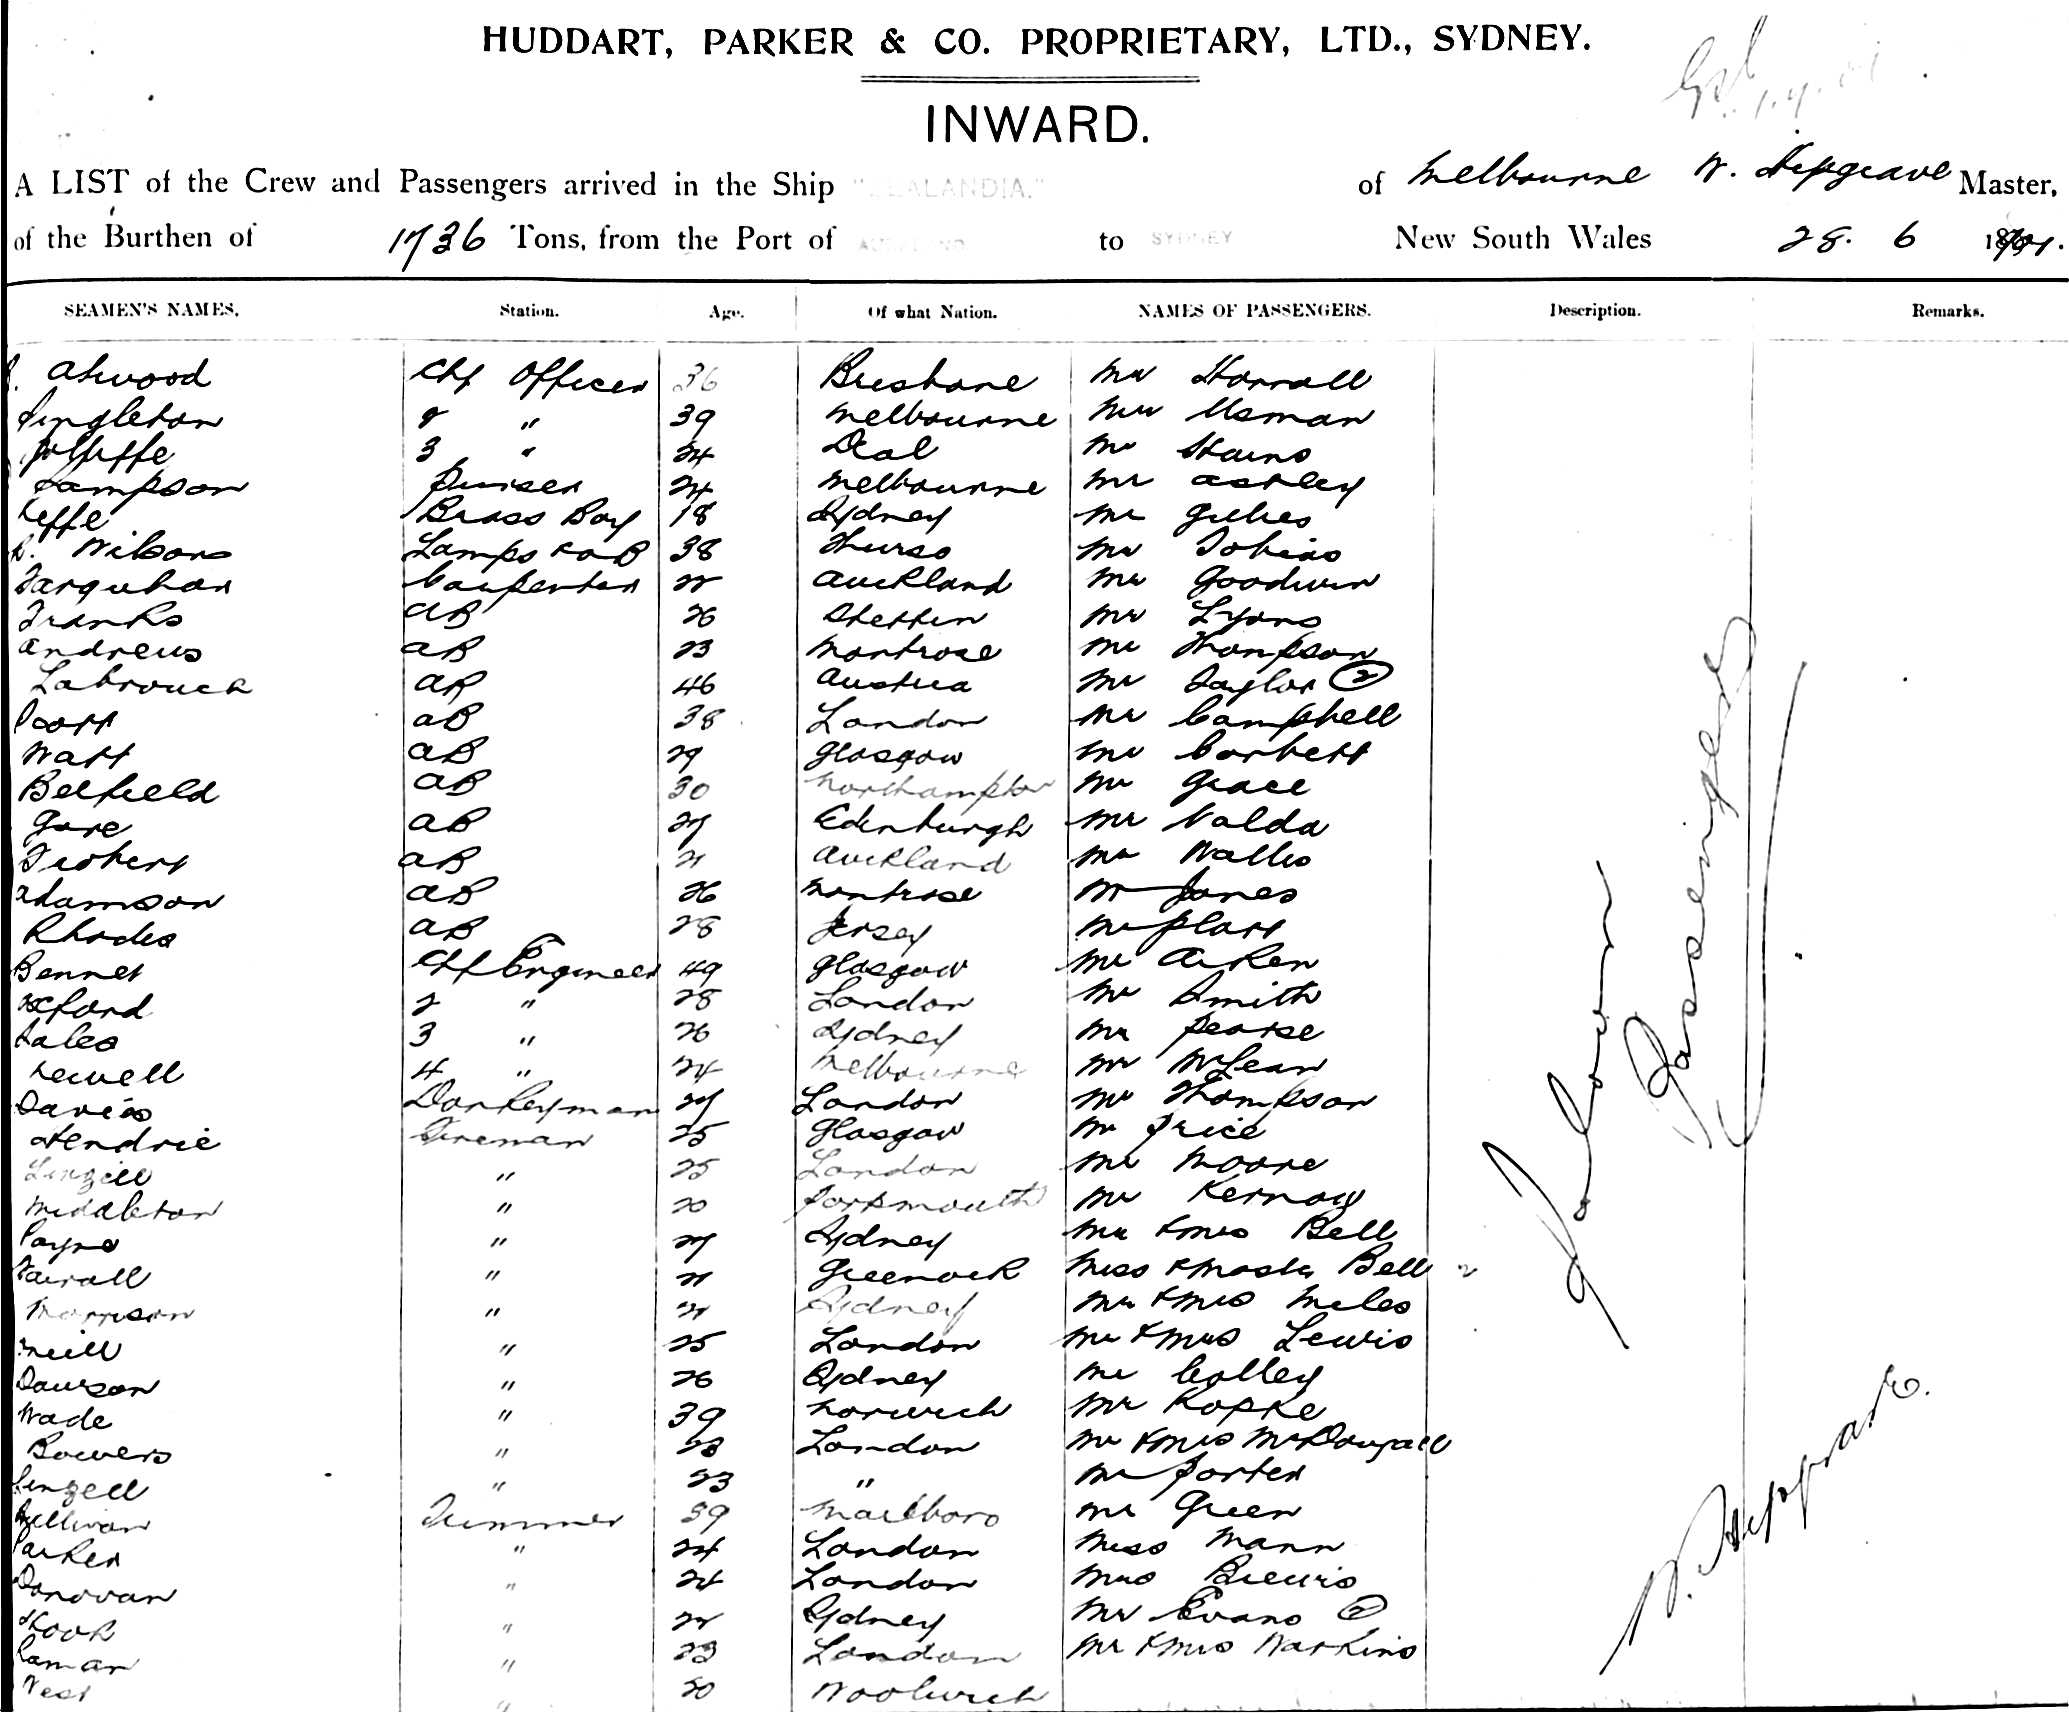 HUDDART, PARKER & CO. PROPRIETARY, LTD., SYDNEY.
INWARD.
A LIST of the Crew and Passengers arrived in the Ship "ZEALANDIA." of Melbourne W. Hipgrave Master,
of the Burthen of 1736 Tons, from the Port of AUCKLAND to SYDNEY New South Wales 28. 6 1901.
SEAMEN'S NAMES. Station. Age. Of what Nation. NAMES OF PASSENGERS. Description. Remarks.
Atwood Chf Officer 36 Brisbane Mr Horrall
Singleton 2 " 39 Melbourne Mr Usman
Jolliffe 3 " 24 Deal Mr
Sampson Purser 24 Melbourne Mr Astley
Keffe Brass Boy 18 Sydney Mr Gillies
Wilsons Lamps & AB 38 Thurso Mr Tobias
Farquhar Carpenter 22 Auckland Mr Goodwin
Franks AB 26 Stettin Mr Lyons
Andrews AB 23 Montrose Mr Thompson
Labrouch AB 46 Austria Mr Taylor 2
Scott AB 38 London Mr Campbell
Watt AB 29 Glasgow Mr Corbett
Belfield AB 30 Northampton Mr Grace
Gore AB 27 Edinburgh Mr Valda
AB 21 Auckland Mr Wallis
Adamson AB 26 Montrose Mr Jones
Rhodes AB 28 Jersey Mr Platt
Bennet Chf Engineer 49 Glasgow Mr Aiken
Oxford 2 " 28 London Mr Smith
Sales 3 " 26 Sydney Mr Pearse
Newell 4 " 24 Melbourne Mr McLean
Davies Donkeyman 27 London Mr Thompson
Hendrie Fireman 25 Glasgow Mr Price
Linzell " 25 London Mr Moore
Middleton " 20 Portsmouth Mr Kernow
Payne " 27 Sydney Mr & Mrs Bell
Fairall " 21 Greenock Miss & Master Bell 2
Morrison " 21 Sydney Mr & Mrs Miles
Neill " 25 London Mr & Mrs Lewis
Dawson " 26 Sydney Mr Colley
Wade " 39 Norwich Mr Kopke
Bowers " 23 London Mr & Mrs McDougall
Linzell " 23 " Mr Porter
Sullivan Trimmer 39 Marlboro Mr Green
Parker " 24 London Miss Mann
Donovan " 24 London Mrs Brewis
Shook " 22 Sydney Mr Evans 2
" 23 London Mr & Mrs Watkins
West " 20 Woolwich
Saloon
Passengers
W. Hipgrave